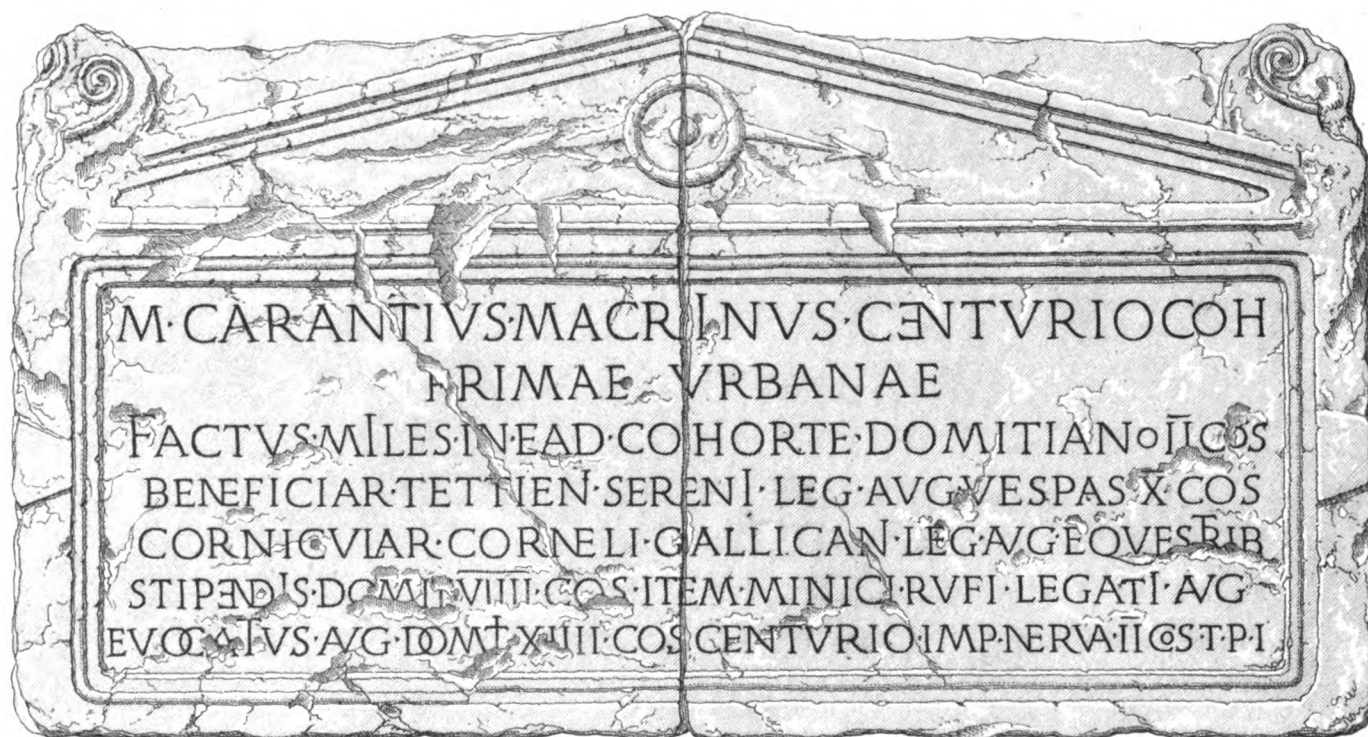 M·CARANTIVS·MACRINVS·CENTVRIO COH
PRIMAE VRBANAE
FACTVS·MILES·IN·EAD·COHORTE·DOMITIANO II COS
BENEFICIAR·TETTIEN·SERENI·LEG·AVG·VESPAS·X·COS
CORNICVIAR·CORNELI·GALLICAN·LEG·AVG·EQVESTRIB
STIPENDIS·DOMIT·VIIII·COS·ITEM·MINICI·RVFI·LEGATI·AVG
EVOCATVS·AVG·DOMIT·XIIII·COS CENTVRIO·IMP·NERVA·II COS·T·P·I